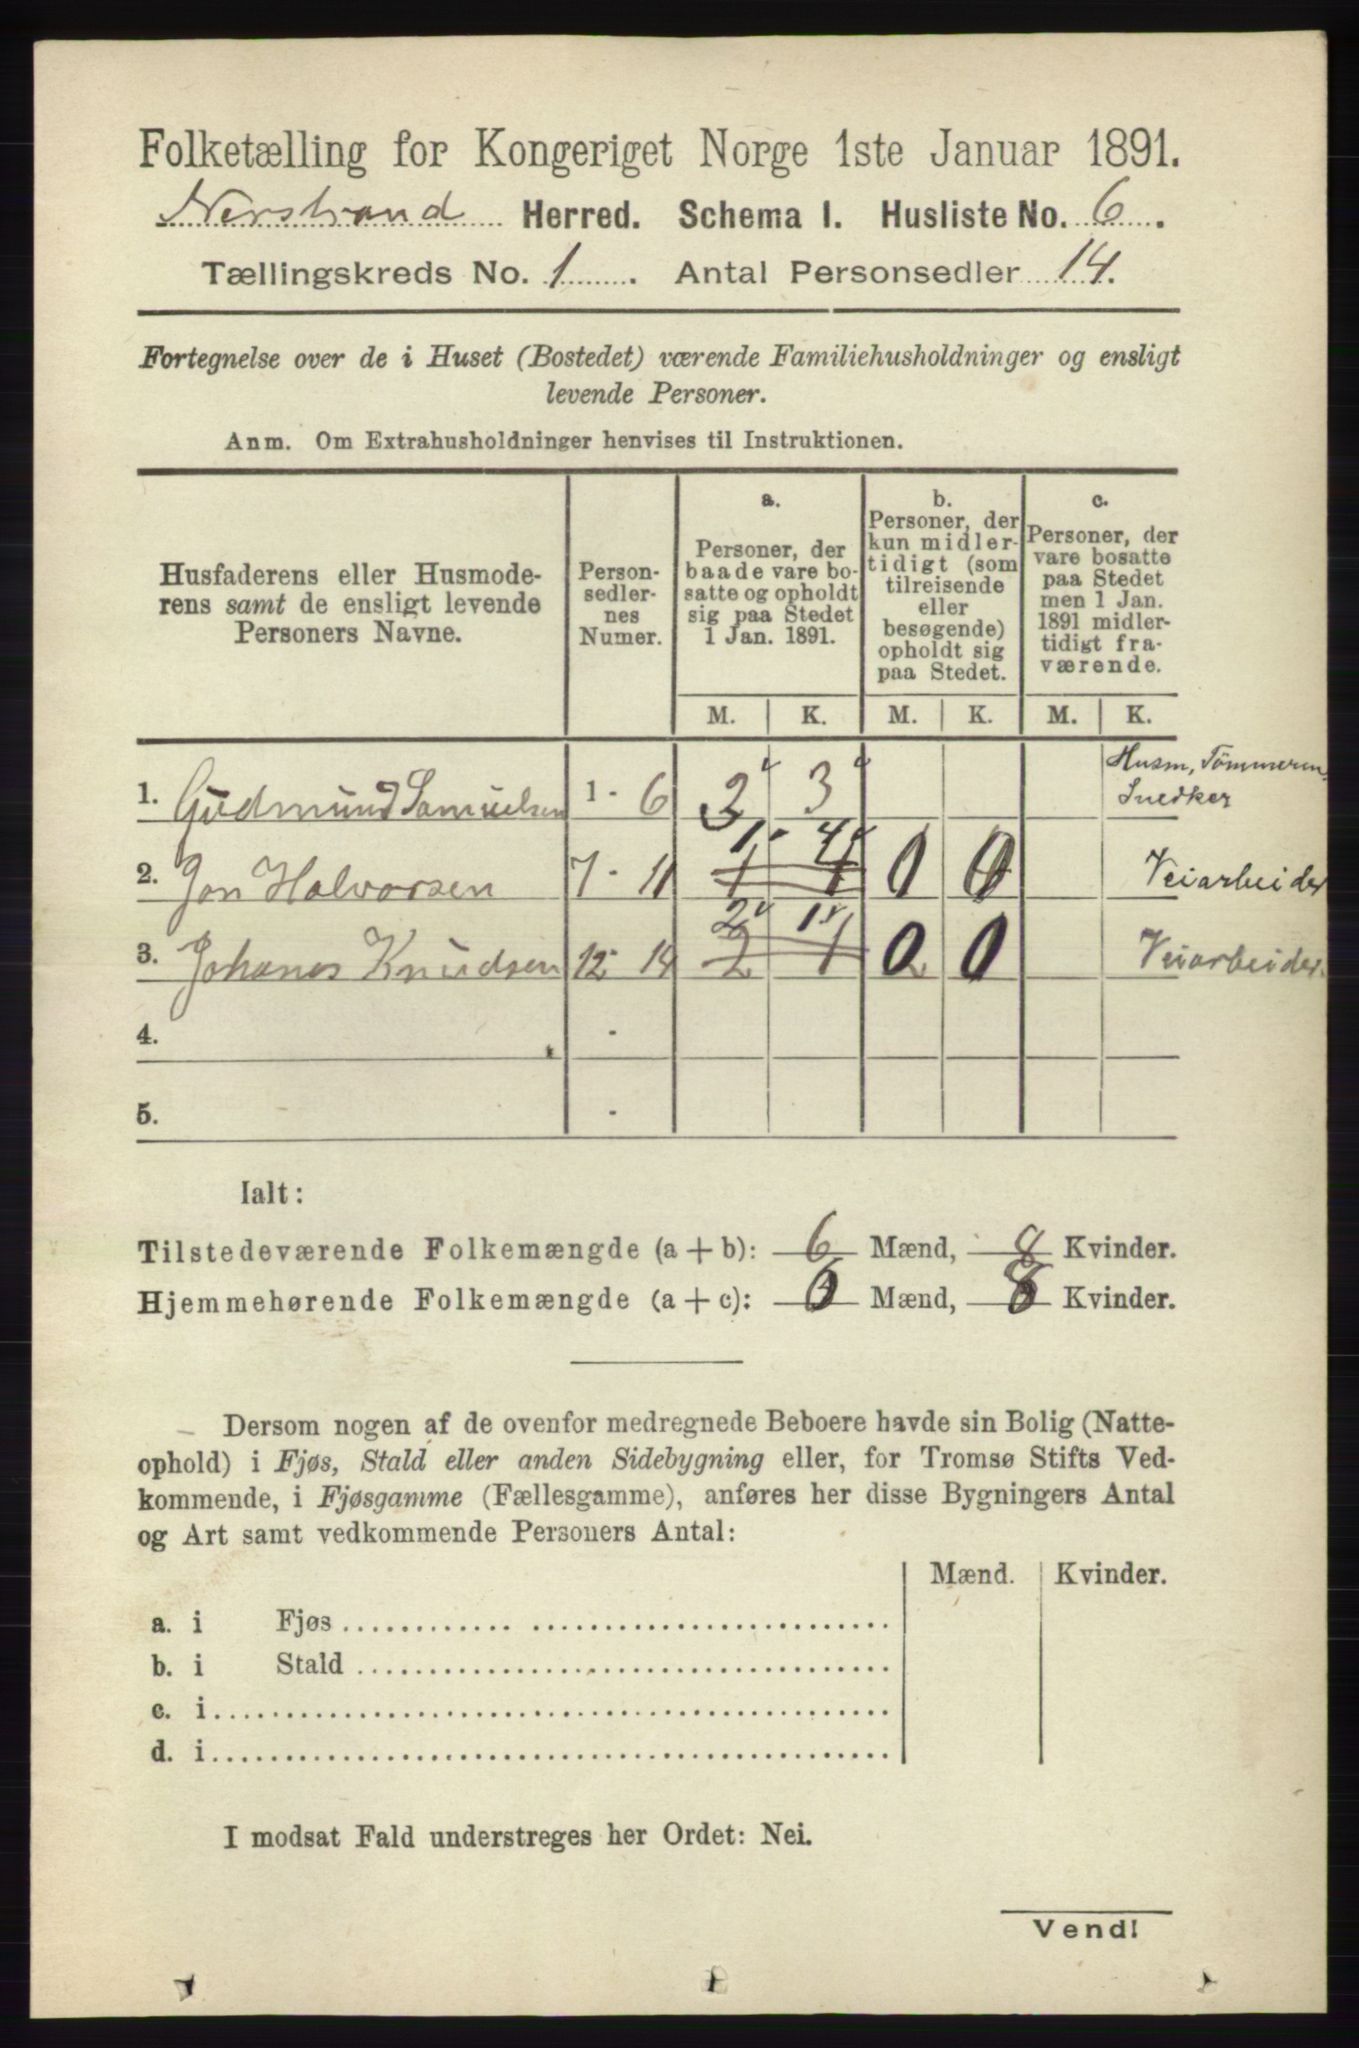 Folketælling for Kongeriget Norge 1ste Januar 1891.
Nerstrand Herred. Schema I. Husliste No. 6.
Tællingskreds No. 1. Antal Personsedler 14.
Fortegnelse over de i Huset (Bostedet) værende Familiehusholdninger og ensligt
levende Personer.
Anm. Om Extrahusholdninger henvises til Instruktionen.
Husfaderens eller Husmode-
rens samt de ensligt levende
Personers Navne.
Person-
sedler-
nes
Numer.
a.
Personer, der
baade vare bo-
satte og opholdt
sig paa Stedet
1 Jan. 1891.
b.
Personer, der
kun midler-
tidigt (som
tilreisende
eller
besøgende)
opholdt sig
paa Stedet.
c.
Personer, der
vare bosatte
paa Stedet
men 1 Jan.
1891 midler-
tidigt fra-
værende.
M. K. M. K. M. K.
1. Gudmund Samuelsen 1 - 6 3 3 Husm, Tömmerm.
Snedker
1 4
2. Jon Halvorsen 7 - 11 1 4 0 0 Veiarbeider
2 1
3. Johanes Knudsen 12 - 14 2 1 0 0 Veiarbeider
4. -
5. -
Ialt:
Tilstedeværende Folkemængde (a + b): 6 Mænd, 8 Kvinder.
Hjemmehørende Folkemængde (a + c): 6 Mænd, 8 Kvinder.
Dersom nogen af de ovenfor medregnede Beboere havde sin Bolig (Natte-
ophold) i Fjøs, Stald eller anden Sidebygning eller, for Tromsø Stifts Ved-
kommende, i Fjøsgamme (Fællesgamme), anføres her disse Bygningers Antal
og Art samt vedkommende Personers Antal:
Mænd. Kvinder.
a. i Fjøs
b. i Stald
c. i
d. i
I modsat Fald understreges her Ordet: Nei.
Vend!